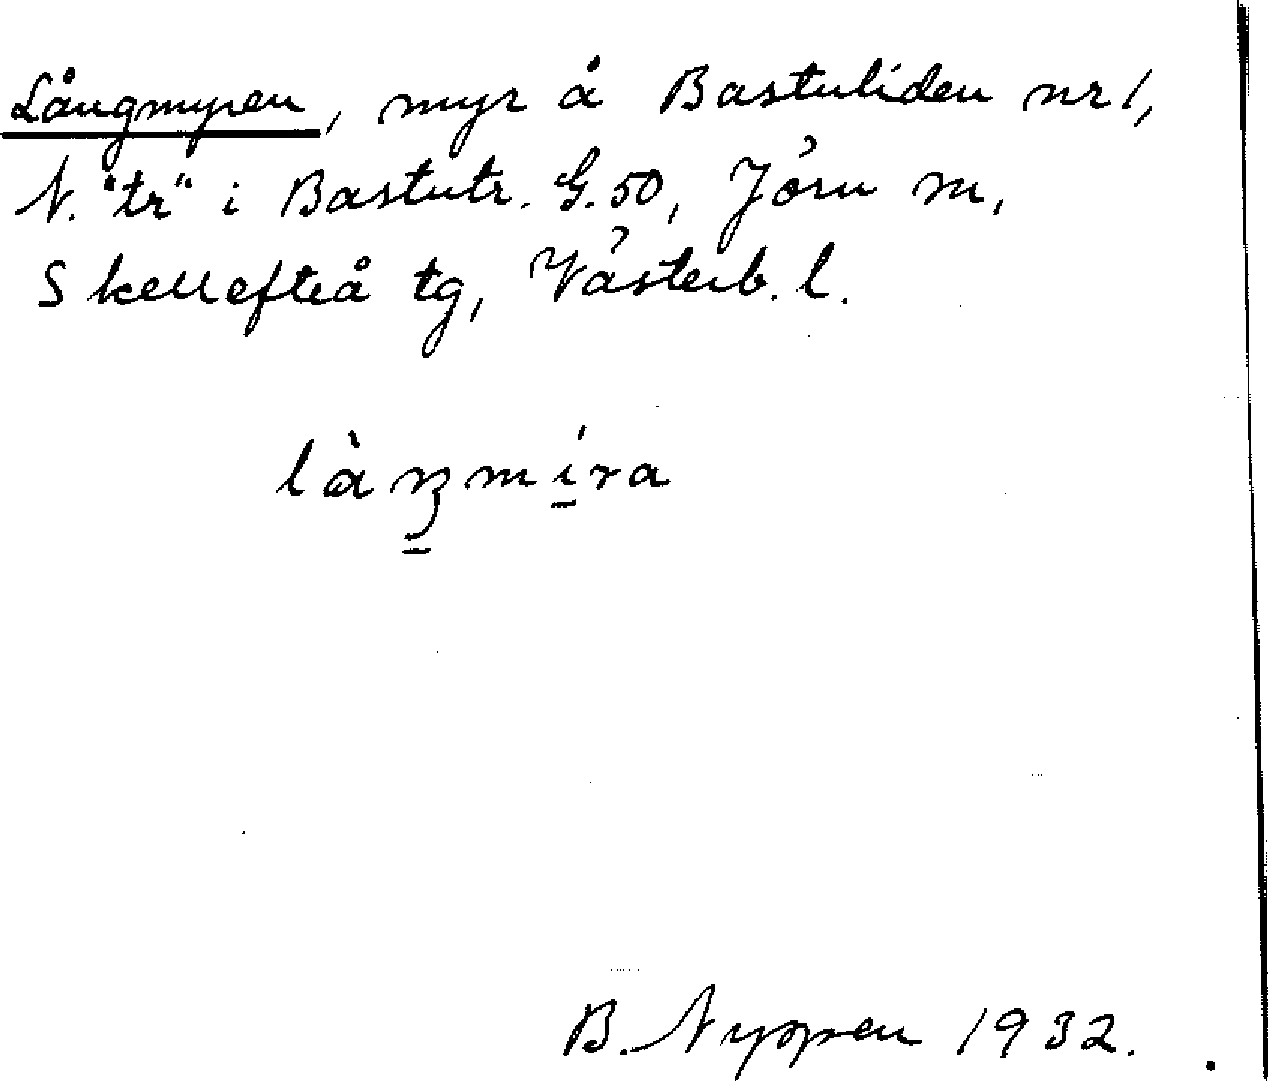 Långmyren, myr å Bastuliden nr 1,
N. "tr" i Bastutr. G. 50, Jörn sn,
Skellefteå tg, Västerb. l.
làŋmíra
B. Nyppen 1932.